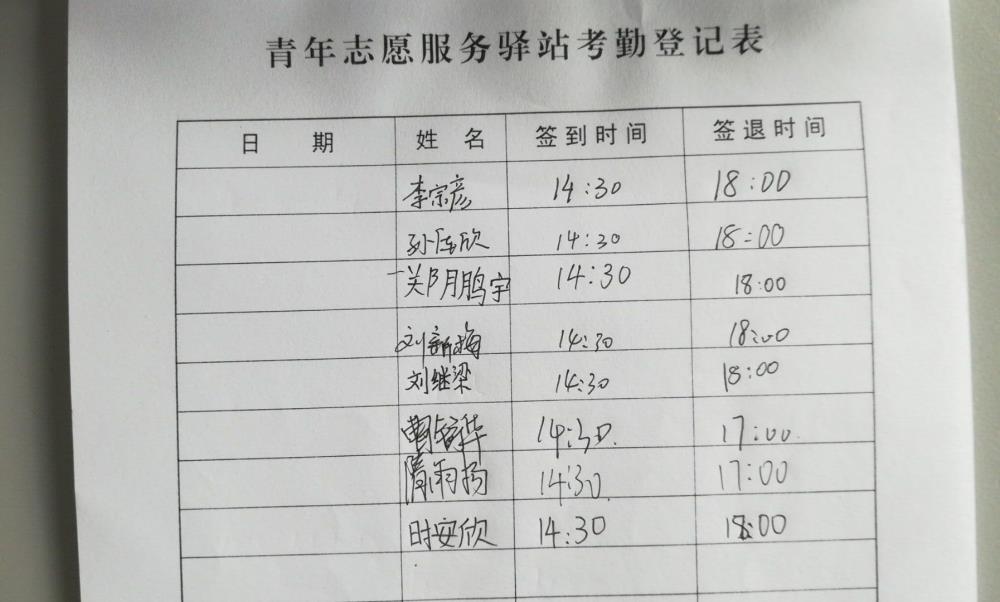 青年志愿服务驿站考勤登记表
日 期 姓 名 签到时间 签退时间
李宗彦 14:30 18:00
孙 欣 14:30 18:00
关 鹏宇 14:30 18:00
刘新梅 14:30 18:00
刘继梁 14:30 18:00
曹 华 14:30. 17:00.
隋雨扬 14:30. 17:00
时安欣 14:30 18:00